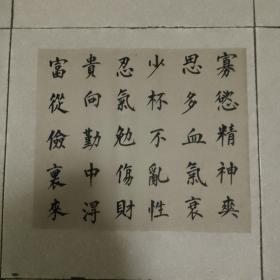 寡慾精神爽
思多血氣衰
少杯不亂性
忍氣勉傷財
貴向勤中淂
富從儉裏來